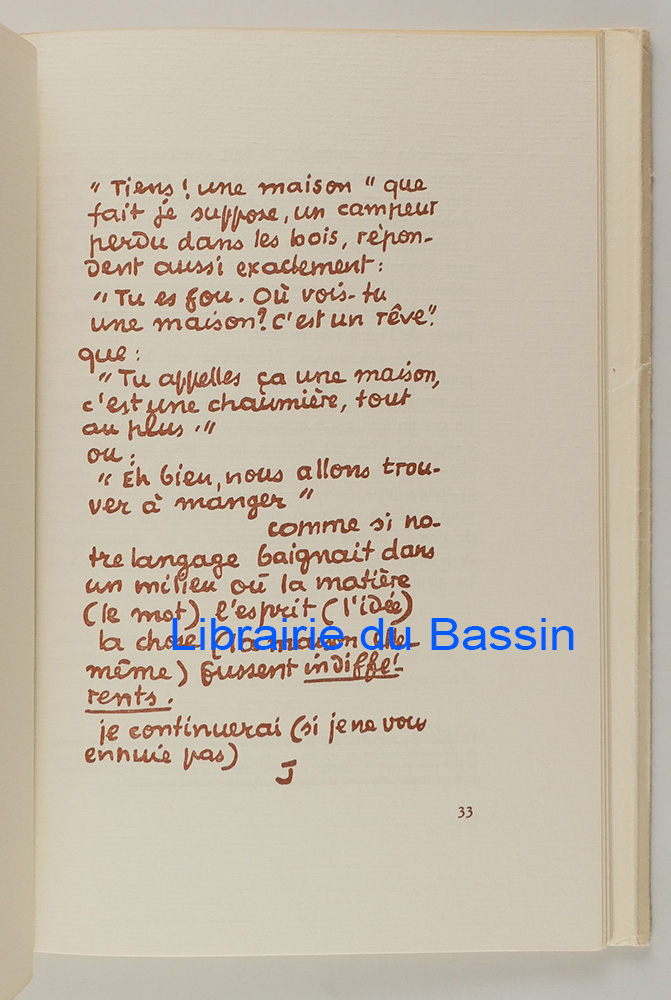 " Tiens ! une maison " que
fait je suppose, un campeur
perdu dans les bois, répon-
dent aussi exactement :
" Tu es fou. Où vois-tu
une maison? c'est un rêve".
que :
" Tu appelles ça une maison,
c'est une chaumière, tout
au plus ."
ou :
" Eh bien, nous allons trou-
ver à manger "
comme si no-
tre langage baignait dans
un milieu où la matière
(le mot), l'esprit (l'idée)
la chose (la maison elle-
même) fussent indiffé-
rents.
je continuerai (si je ne vous
ennuie pas)
J
33
Librairie du Bassin